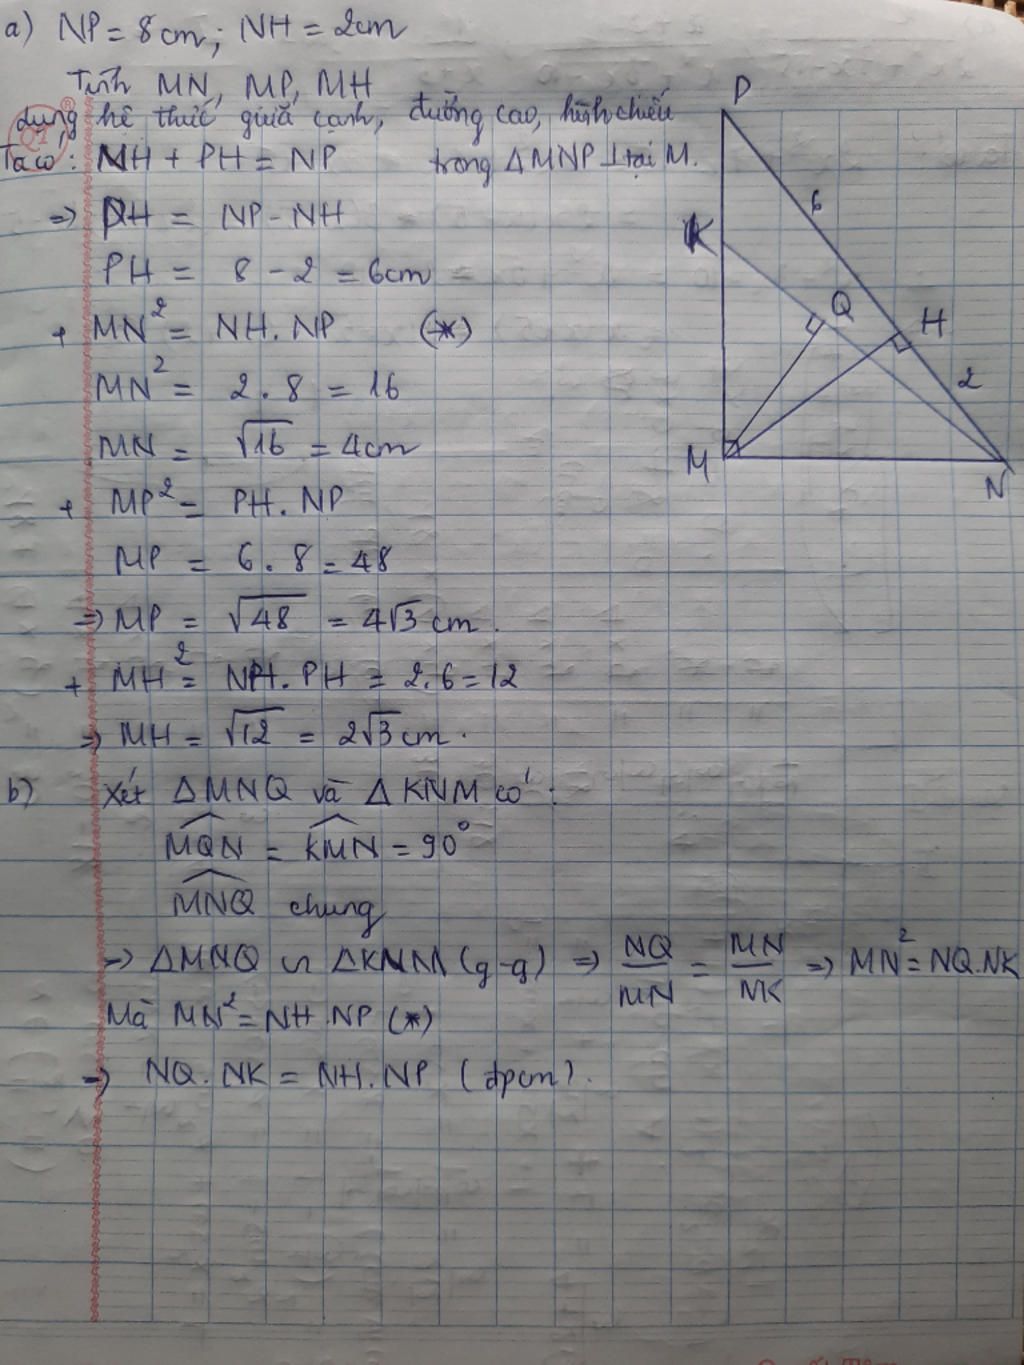 a) NP = 8cm; NH = 2cm
Tính MN, MP, MH
dùng hệ thức giữa cạnh, đường cao, hình chiếu
trong ΔMNP ⊥ tại M.
Ta có: NH + PH = NP
=> PH = NP - NH
PH = 8 - 2 = 6cm
+ MN² = NH. NP (*)
MN² = 2 . 8 = 16
MN = √16 = 4cm
+ MP² = PH. NP
MP = 6 . 8 = 48
=> MP = √48 = 4√3 cm.
+ MH² = NH. PH = 2.6 = 12
=> MH = √12 = 2√3 cm.
b) Xét ΔMNQ và ΔKNM có:
MQN = KMN = 90°
MNQ chung
=> ΔMNQ ∽ ΔKNM (g-g) => NQ/MN = MN/NK => MN² = NQ.NK
Mà MN² = NH.NP (*)
=> NQ. NK = NH. NP (đpcm).
P
6
K
Q
H
2
M
N